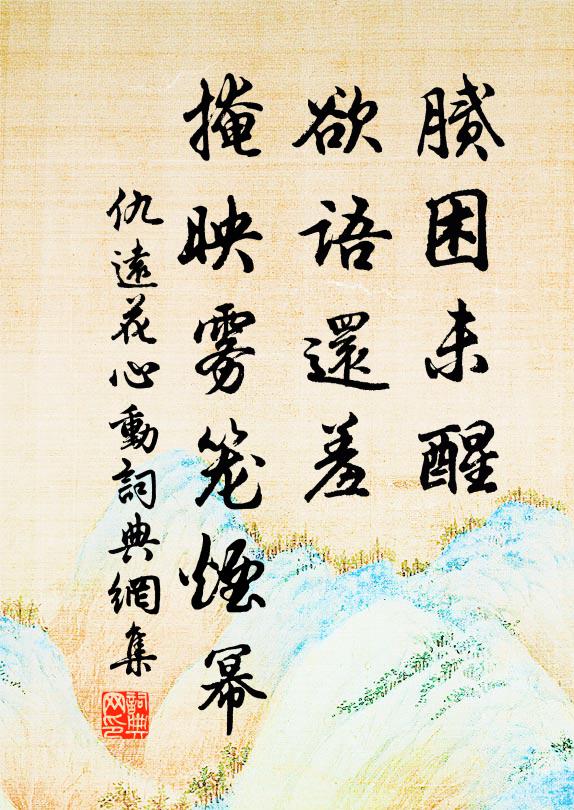 賸困未醒
欲語還羞
掩映雾笼煙幕
仇遠花心動詞典網集
詞典网印